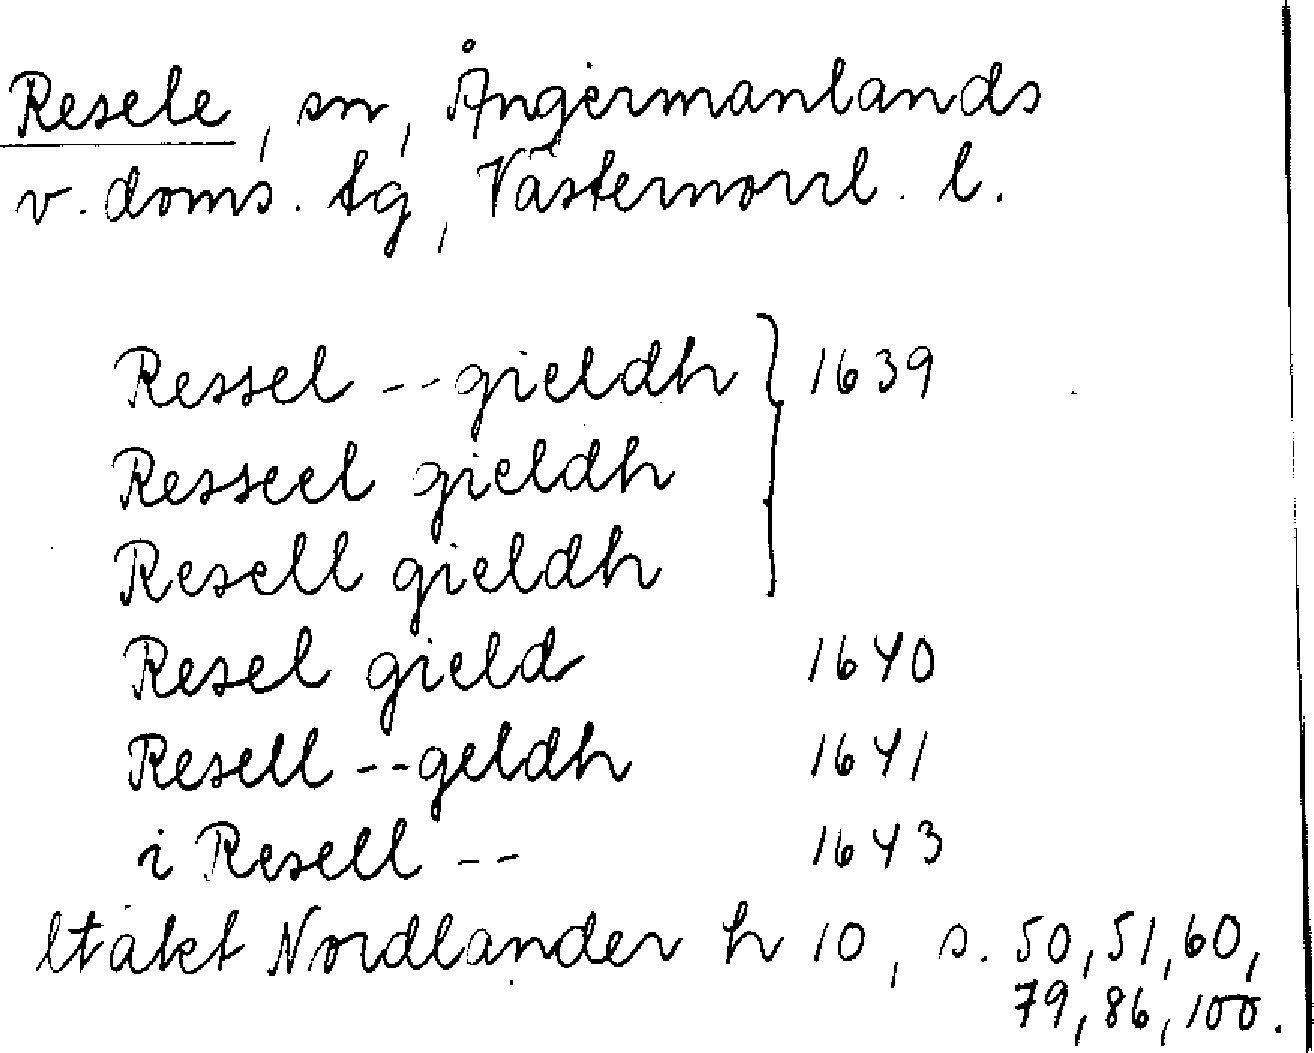 Resele, sn, Ångermanlands
v. doms. tg, Västernorrl. l.
Ressel -- gieldh } 1639
Resseel gieldh
Resell gieldh
Resel gield 1640
Resell -- geldh 1641
i Resell -- 1643
Nordlander h 10, s. 50, 51, 60,
79, 86, 100.